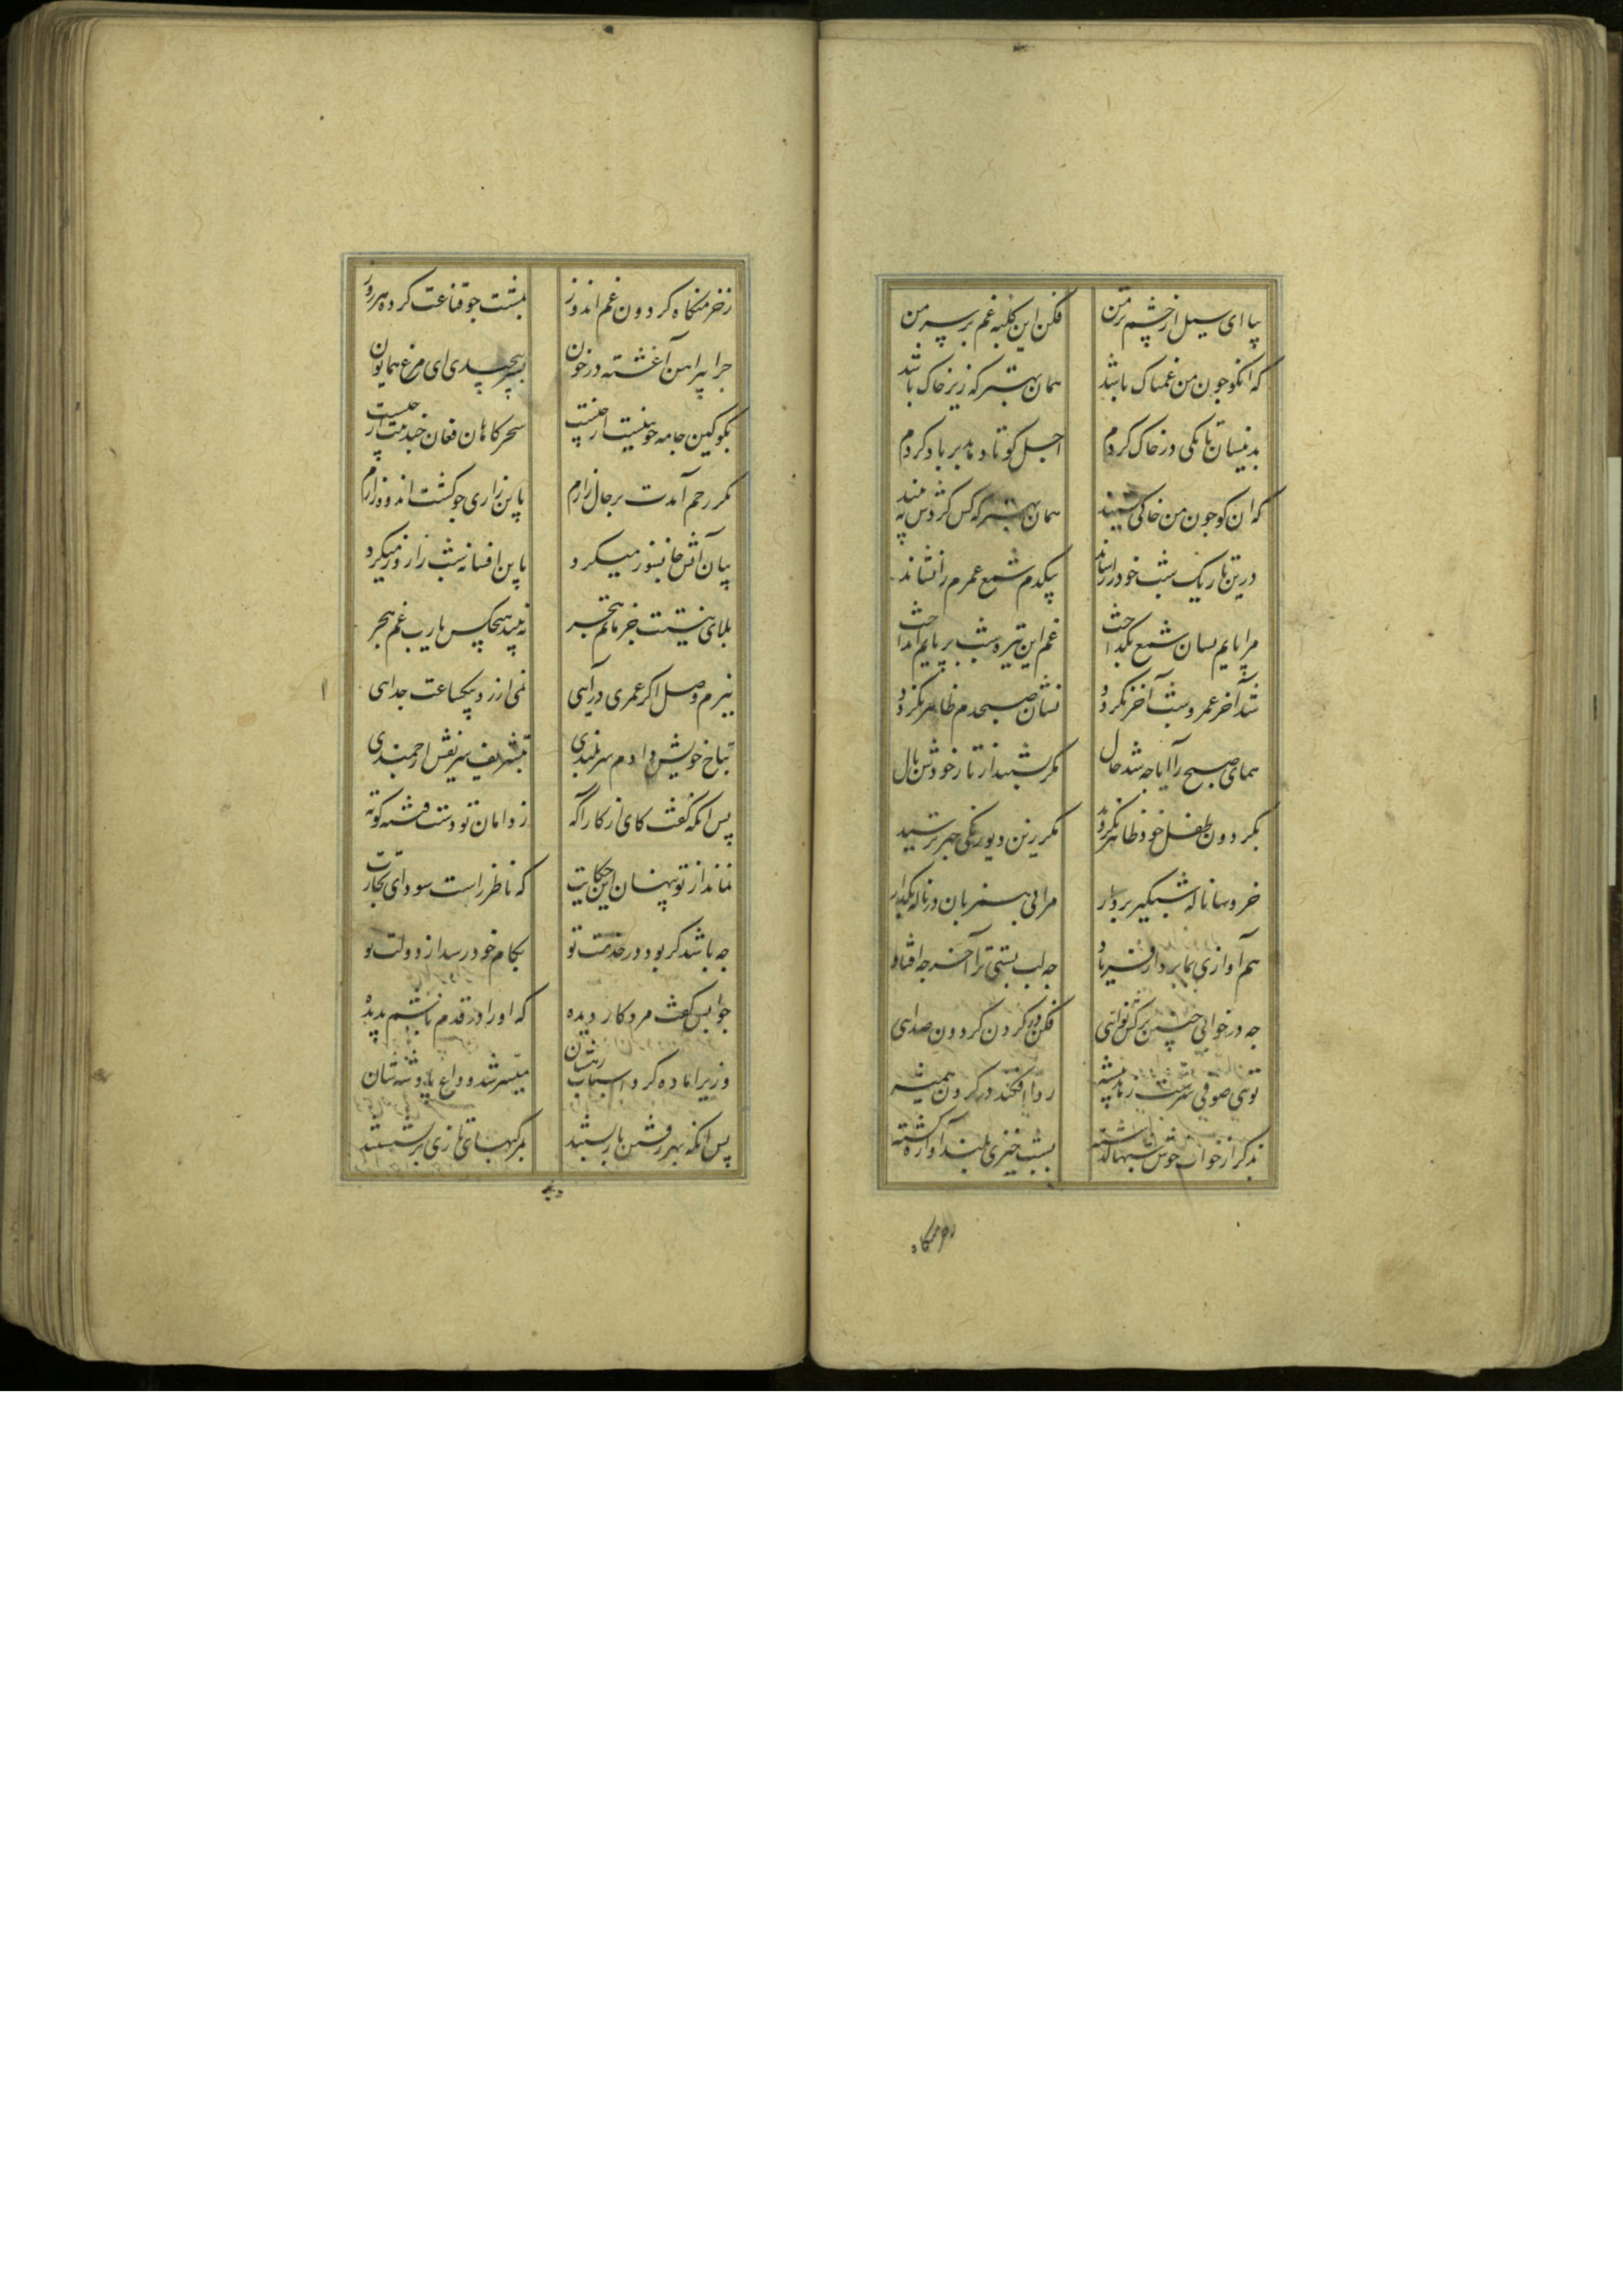 بیا ای سیل از چشم تر من فکن این کلبه غم بر سر من
که انکو جون من غمناک باشد همان بهتر که زیر خاک باشد
بدینسان تا بکی در خاک کردم اجل کو تا دهد بر باد کردم
که ان کو جون من خاکی نشیند همان بهتر که کس کردش نه بیند
درین تاریک شب خود را رساند بیکدم شمع عمرم را نشاند
مرا پایم بسان شمع بکداخت غم این تیره شب بر پایم انداخت
شد آخر عمر و شب آخر نکردد نشان صبحدم ظاهر نکردد
همای صبح را ایا جه شد حال مکر بستند از تار خودش بال
بکردون طفل خود ظاهر نکردد مکر زین دیو زنکی جهر ترسید
خروسا ناله شبکیر بردار مرا بی همزبان در ناله مکذار
هم آوازی نما بردار فریاد جه لب بستی ترا آخر جه افتاد
جه در خوابی جنین برکش نوایی فکن در کردون کردون صدایی
تویی صوفی سرشت زهد پیشه ردا افکنده در کردن همیشه
ذکر از خواب خوش شبها کذشته بشب خیزی بلند آوازه کشته
ز خرمنکاه کردون غم اندوز بمشت جو قناعت کرده هر روز
جرا پیراهن آغشته در خون بسر پیچیده ای مرغ همایون
بکو کین جامه خونینت از جیست سحر کاهان فغان جندینت از جیست
مکر رحم آمدت بر حال زارم باین زاری جو کشت اندوه زارم
بیان آتش جانسوز میکرد باین افسانه شب را روز میکرد
بلای نیست همچون ماتم هجر نه بیند هیچکس یارب غم هجر
بزم وصل اکر عمری درآیی نمی ارزد بیکساعت جدایی
بتاج خویش دادم سربلندی بتشریف شریفش ارجمندی
پس انکه کفت کای از کار آکه ز دامان تو دست فتنه کوته
نماند از تو پنهان این حکایت که ناظر راست سودای تجارت
جه باشد کر بود در خدمت تو بکام خود رسد از دولت تو
جوابش کفت مرد کار دیده که او را در قدم باشم بدیده
وزیر اماده کرد اسباب رهشان میسر شد وداع پادشه شان
پس انکه بهر رفتن بار بستند بمرکبهای تازی بر نشستند